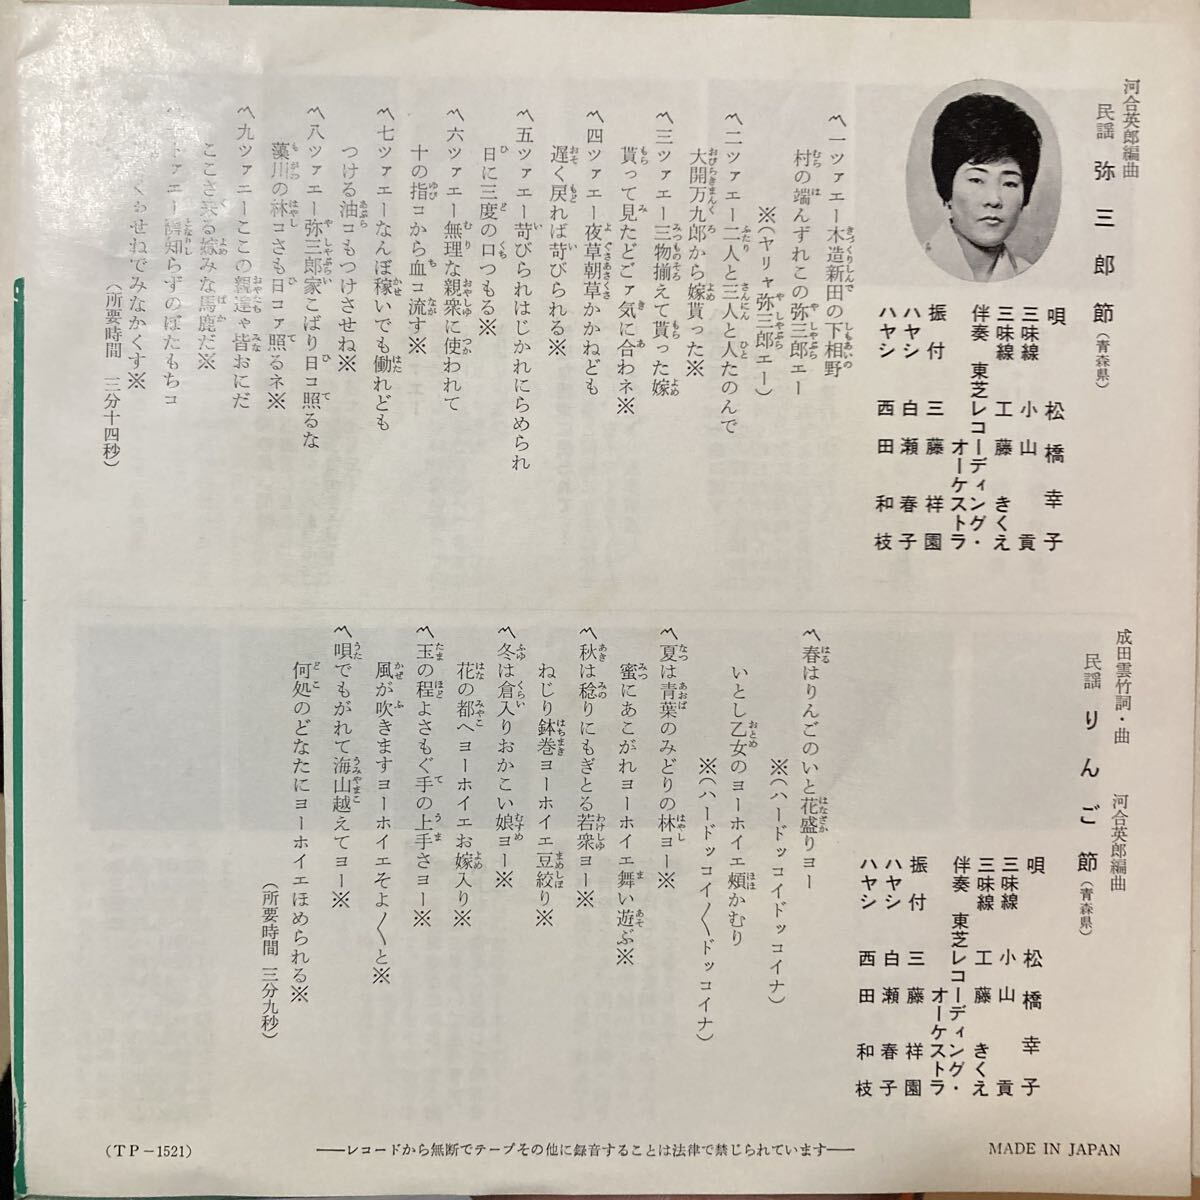 河合英郎編曲
民謡 弥三郎節(青森県)
唄 松橋幸子
三味線 小山貢
三味線 工藤きくえ
伴奏 東芝レコーディング・オーケストラ
振付 三藤祥園
ハヤシ 白瀬春子
ハヤシ 西田和枝
〽一ツァエー木造新田の下相野
村の端んずれこの弥三郎エー
※(ヤリャ弥三郎エー)
〽二ツァエー二人と三人と人たのんで
大開万九郎から嫁貰った※
〽三ツァエー三物揃えて貰った嫁
貰って見たどごァ気に合わネ※
〽四ツァエー夜草朝草かかねども
遅く戻れば苛びられる※
〽五ツァエー苛びられはじかれにらめられ
日に三度の口つもる※
〽六ツァエー無理な親衆に使われて
十の指コから血コ流す※
〽七ツァエーなんぼ稼いでも働れども
つける油コもつけさせね※
〽八ツァエー弥三郎家こばり日コ照るな
藻川の林コさも日コァ照るネ※
〽九ツァエーここの親達ゃ皆おにだ
ここさ来る嫁みな馬鹿だ※
ァエー隣知らずのぼたもちコ
わせねでみなかくす※
(所要時間 三分十四秒)
成田雲竹詞・曲 河合英郎編曲
民謡 りんご節(青森県)
唄 松橋幸子
三味線 小山貢
三味線 工藤きくえ
伴奏 東芝レコーディング・オーケストラ
振付 三藤祥園
ハヤシ 白瀬春子
ハヤシ 西田和枝
〽春はりんごのいと花盛りヨー
※(ハードッコイドッコイナ)
いとし乙女のヨーホイエ頰かむり
※(ハードッコイ〳〵ドッコイナ)
〽夏は青葉のみどりの林ヨー※
蜜にあこがれヨーホイエ舞い遊ぶ※
〽秋は稔りにもぎとる若衆ヨー※
ねじり鉢巻ヨーホイエ豆絞り※
〽冬は倉入りおかこい娘ヨー※
花の都へヨーホイエお嫁入り※
〽玉の程よさもぐ手の上手さヨー※
風が吹きますヨーホイエそよ〳〵と※
〽唄でもがれて海山越えてヨー※
何処のどなたにヨーホイエほめられる※
(所要時間 三分九秒)
(TP-1521)
――レコードから無断でテープその他に録音することは法律で禁じられています――
MADE IN JAPAN